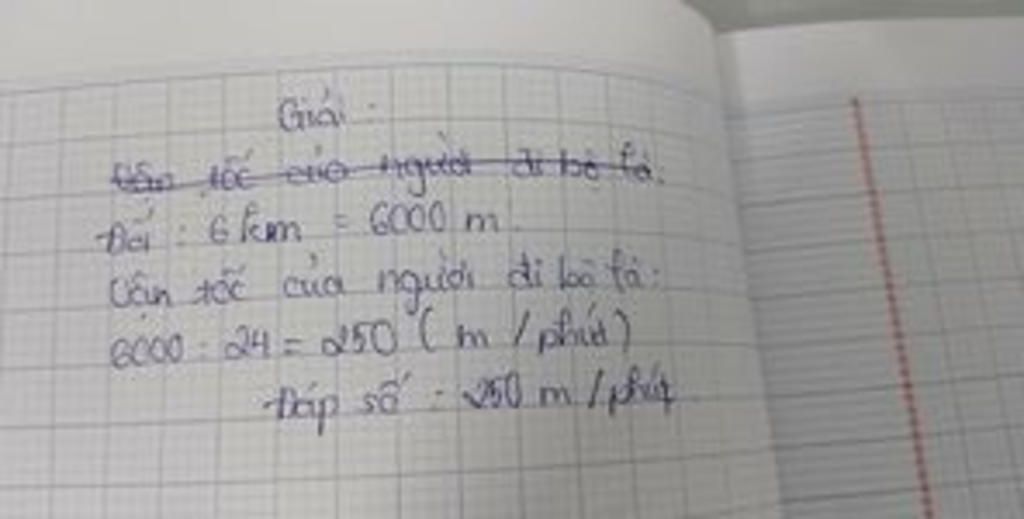 Giải :
Vận tốc của người đi bộ là:
Đổi : 6 km = 6000 m.
Vận tốc của người đi bộ là:
6000 : 24 = 250 ( m / phút)
Đáp số : 250 m / phút